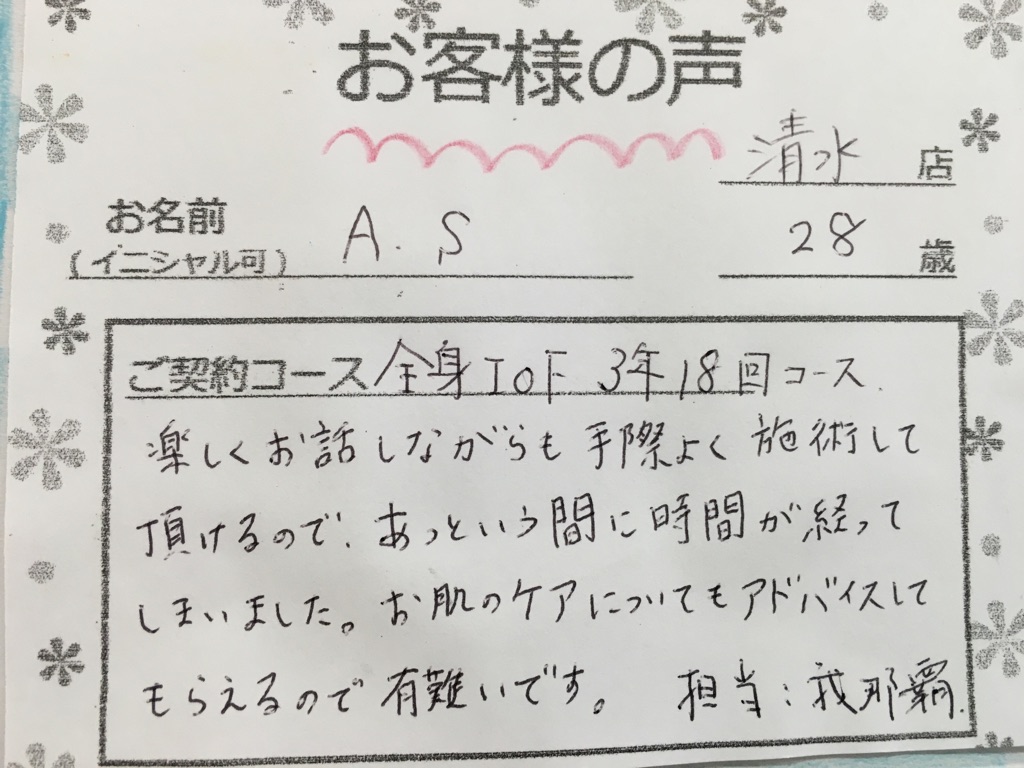 お客様の声
清水 店
お名前
(イニシャル可) A.S 28 歳
ご契約コース 全身IOF 3年18回コース.
楽しくお話しながらも手際よく施術して
頂けるので、あっという間に時間が経って
しまいました。お肌のケアについてもアドバイスして
もらえるので有難いです。 担当:我那覇.